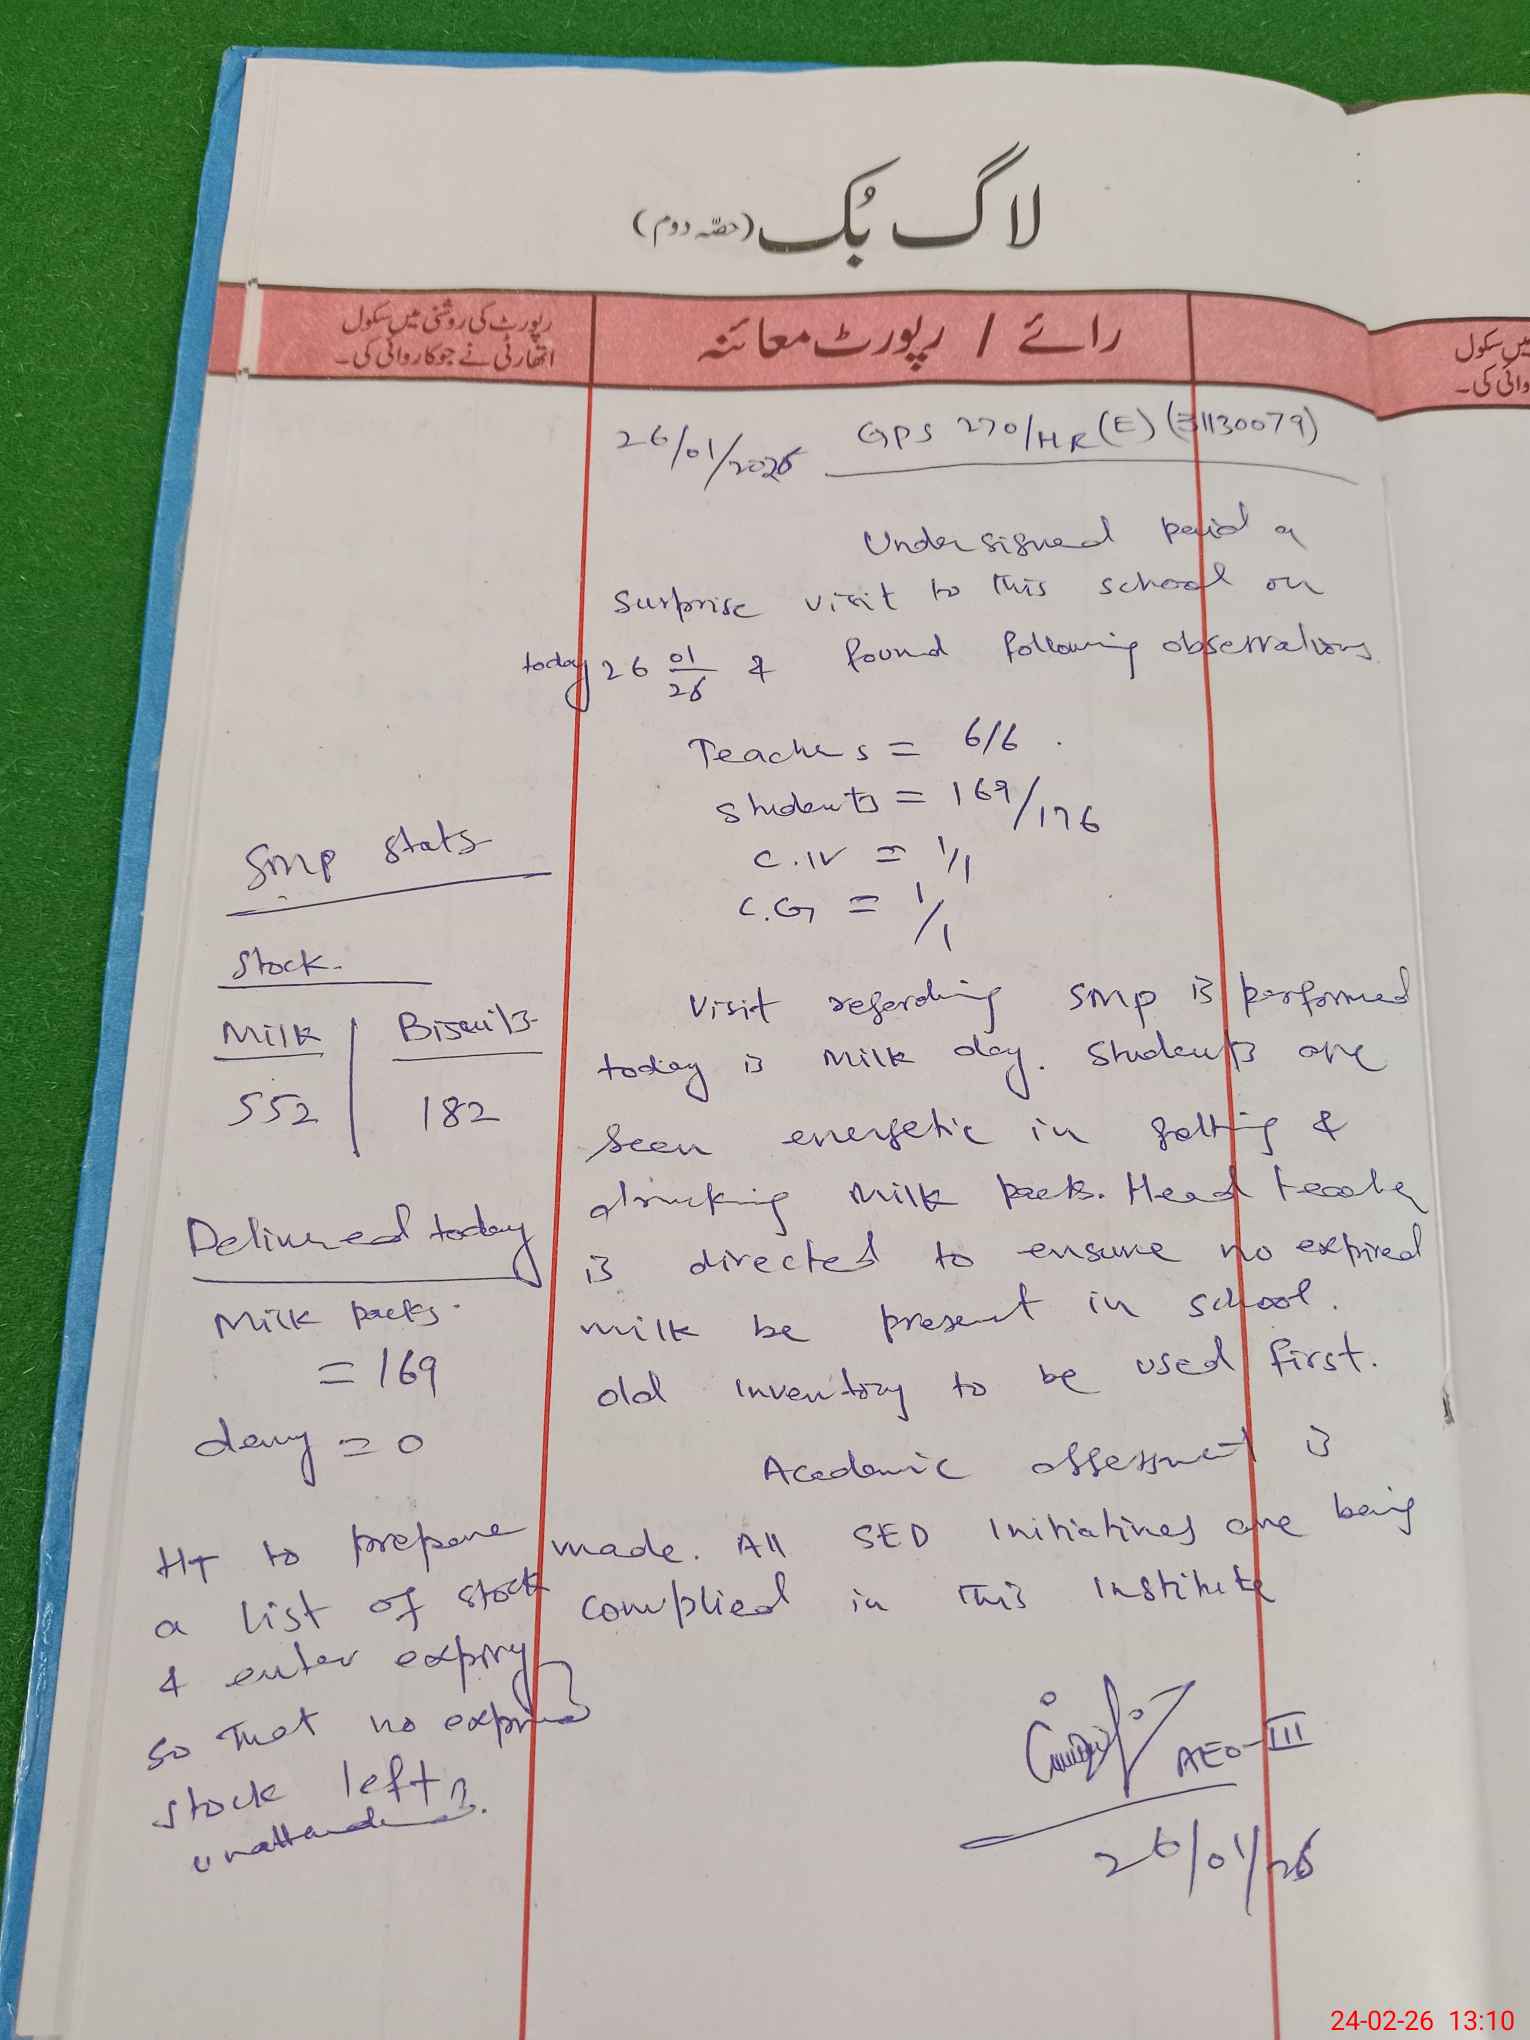 لاگ بُک (حصّہ دوم)
رائے / رپورٹ معائنہ
رپورٹ کی روشنی میں سکول
اتھارٹی نے جو کاروائی کی۔
میں سکول
وائی کی۔
26/01/2026 GPS 270/HR(E) (31130079)
Undersigned paid a
surprise visit to this school on
today 26 01/26 & found following observations
Teachers = 6/6
Students = 169/176
C.IV = 1/1
C.G = 1/1
Visit regarding SMP is performed
today is Milk day. Students are
seen energetic in getting &
drinking Milk packs. Head teacher
is directed to ensure no expired
milk be present in school.
old inventory to be used first.
Academic assessment is
made. All SED Initiatives are being
complied in this institute
AEO-III
26/01/26
SMP stats
Stock.
Milk | Biscuits
552 | 182
Delivered today
Milk packs.
= 169
deny = 0
HT to prepare
a list of stock
& enter expiry
so that no expired
stock left
unattended.
24-02-26 13:10